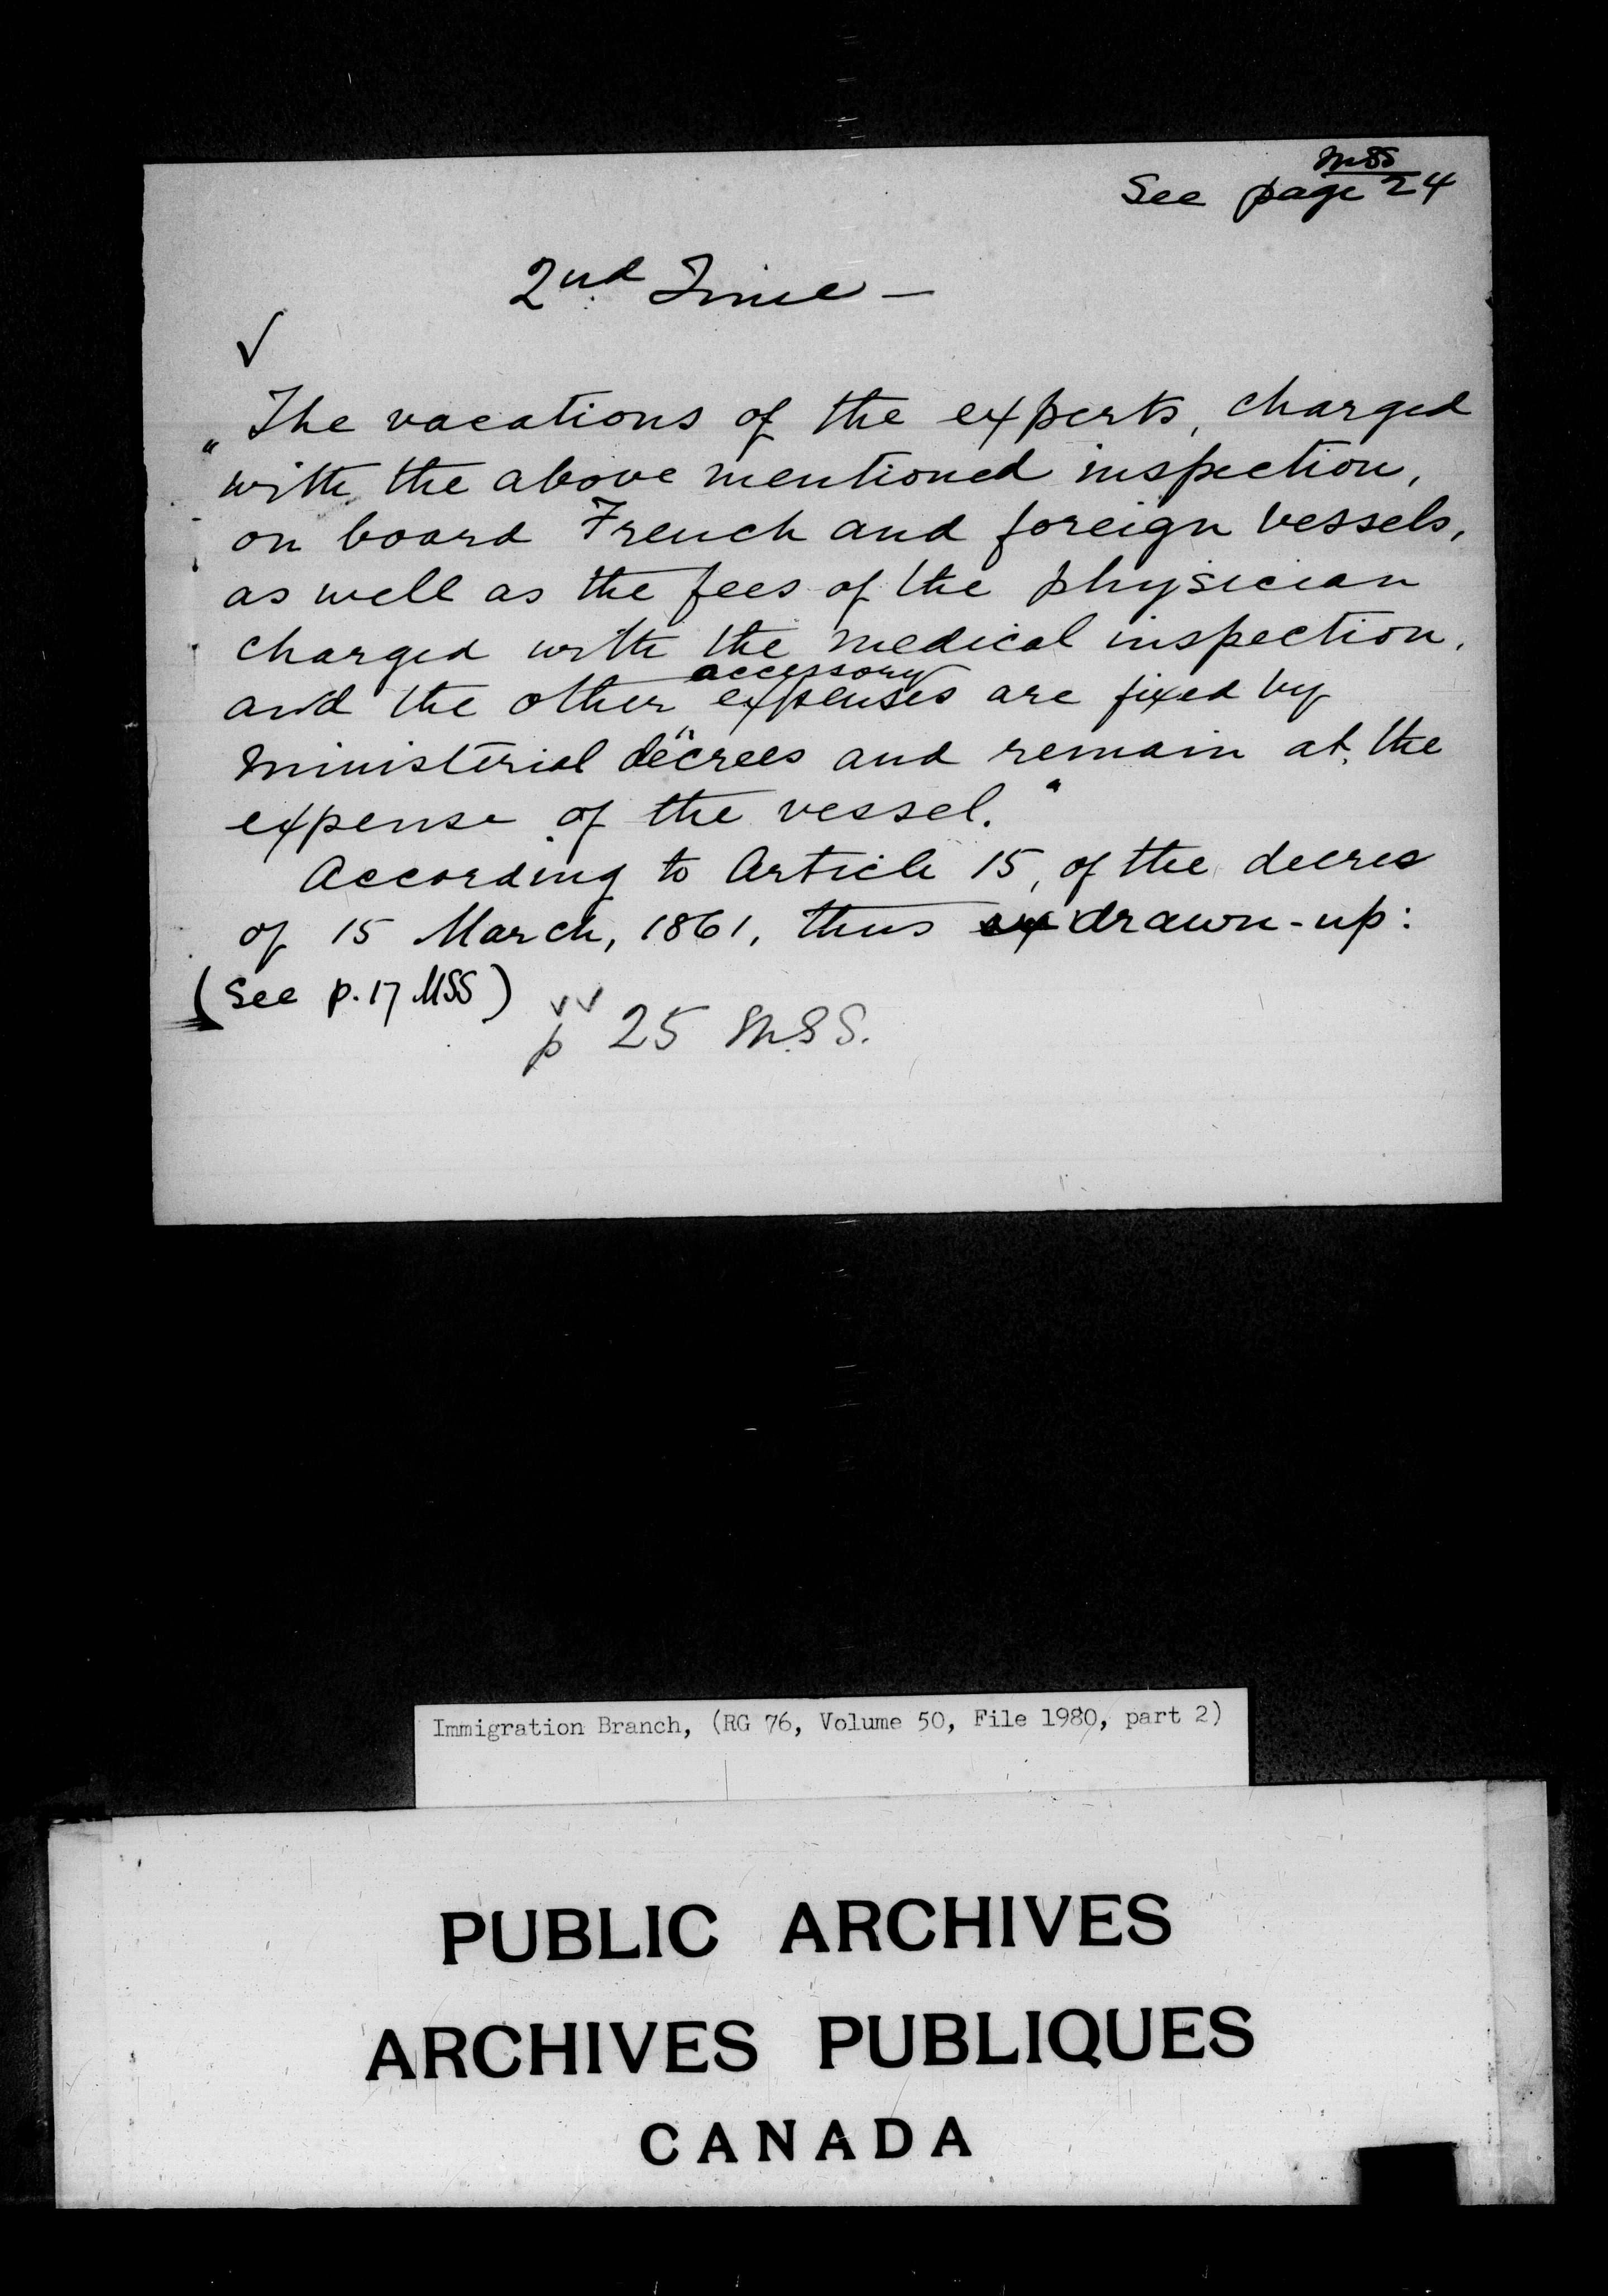 MSS
See page 24
2nd Time —
✓
"The vacations of the experts, charged
with the above mentioned inspection,
on board French and foreign vessels,
as well as the fees of the physician
charged with the medical inspection,
accessory
and the other expenses are fixed by
ministerial decrees and remain at the
expense of the vessel."
According to Article 15, of the decree
of 15 March, 1861, thus drawn-up:
(See p. 17 MSS)
p 25 MSS.
Immigration Branch, (RG 76, Volume 50, File 1980, part 2)
PUBLIC ARCHIVES
ARCHIVES PUBLIQUES
CANADA